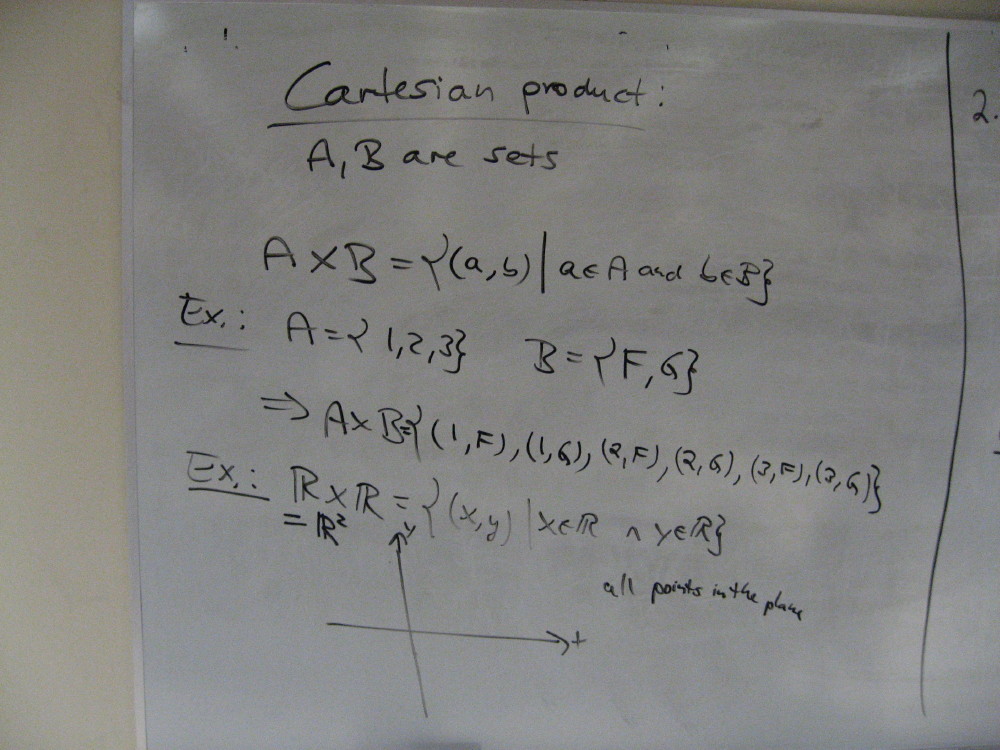 Cartesian product:
A, B are sets
A × B = {(a, b) | a ∈ A and b ∈ B}
Ex.: A = {1, 2, 3} B = {F, G}
⇒ A × B = {(1, F), (1, G), (2, F), (2, G), (3, F), (3, G)}
Ex.: ℝ × ℝ = {(x, y) | x ∈ ℝ ∧ y ∈ ℝ}
= ℝ²
y
all points in the plane
2.